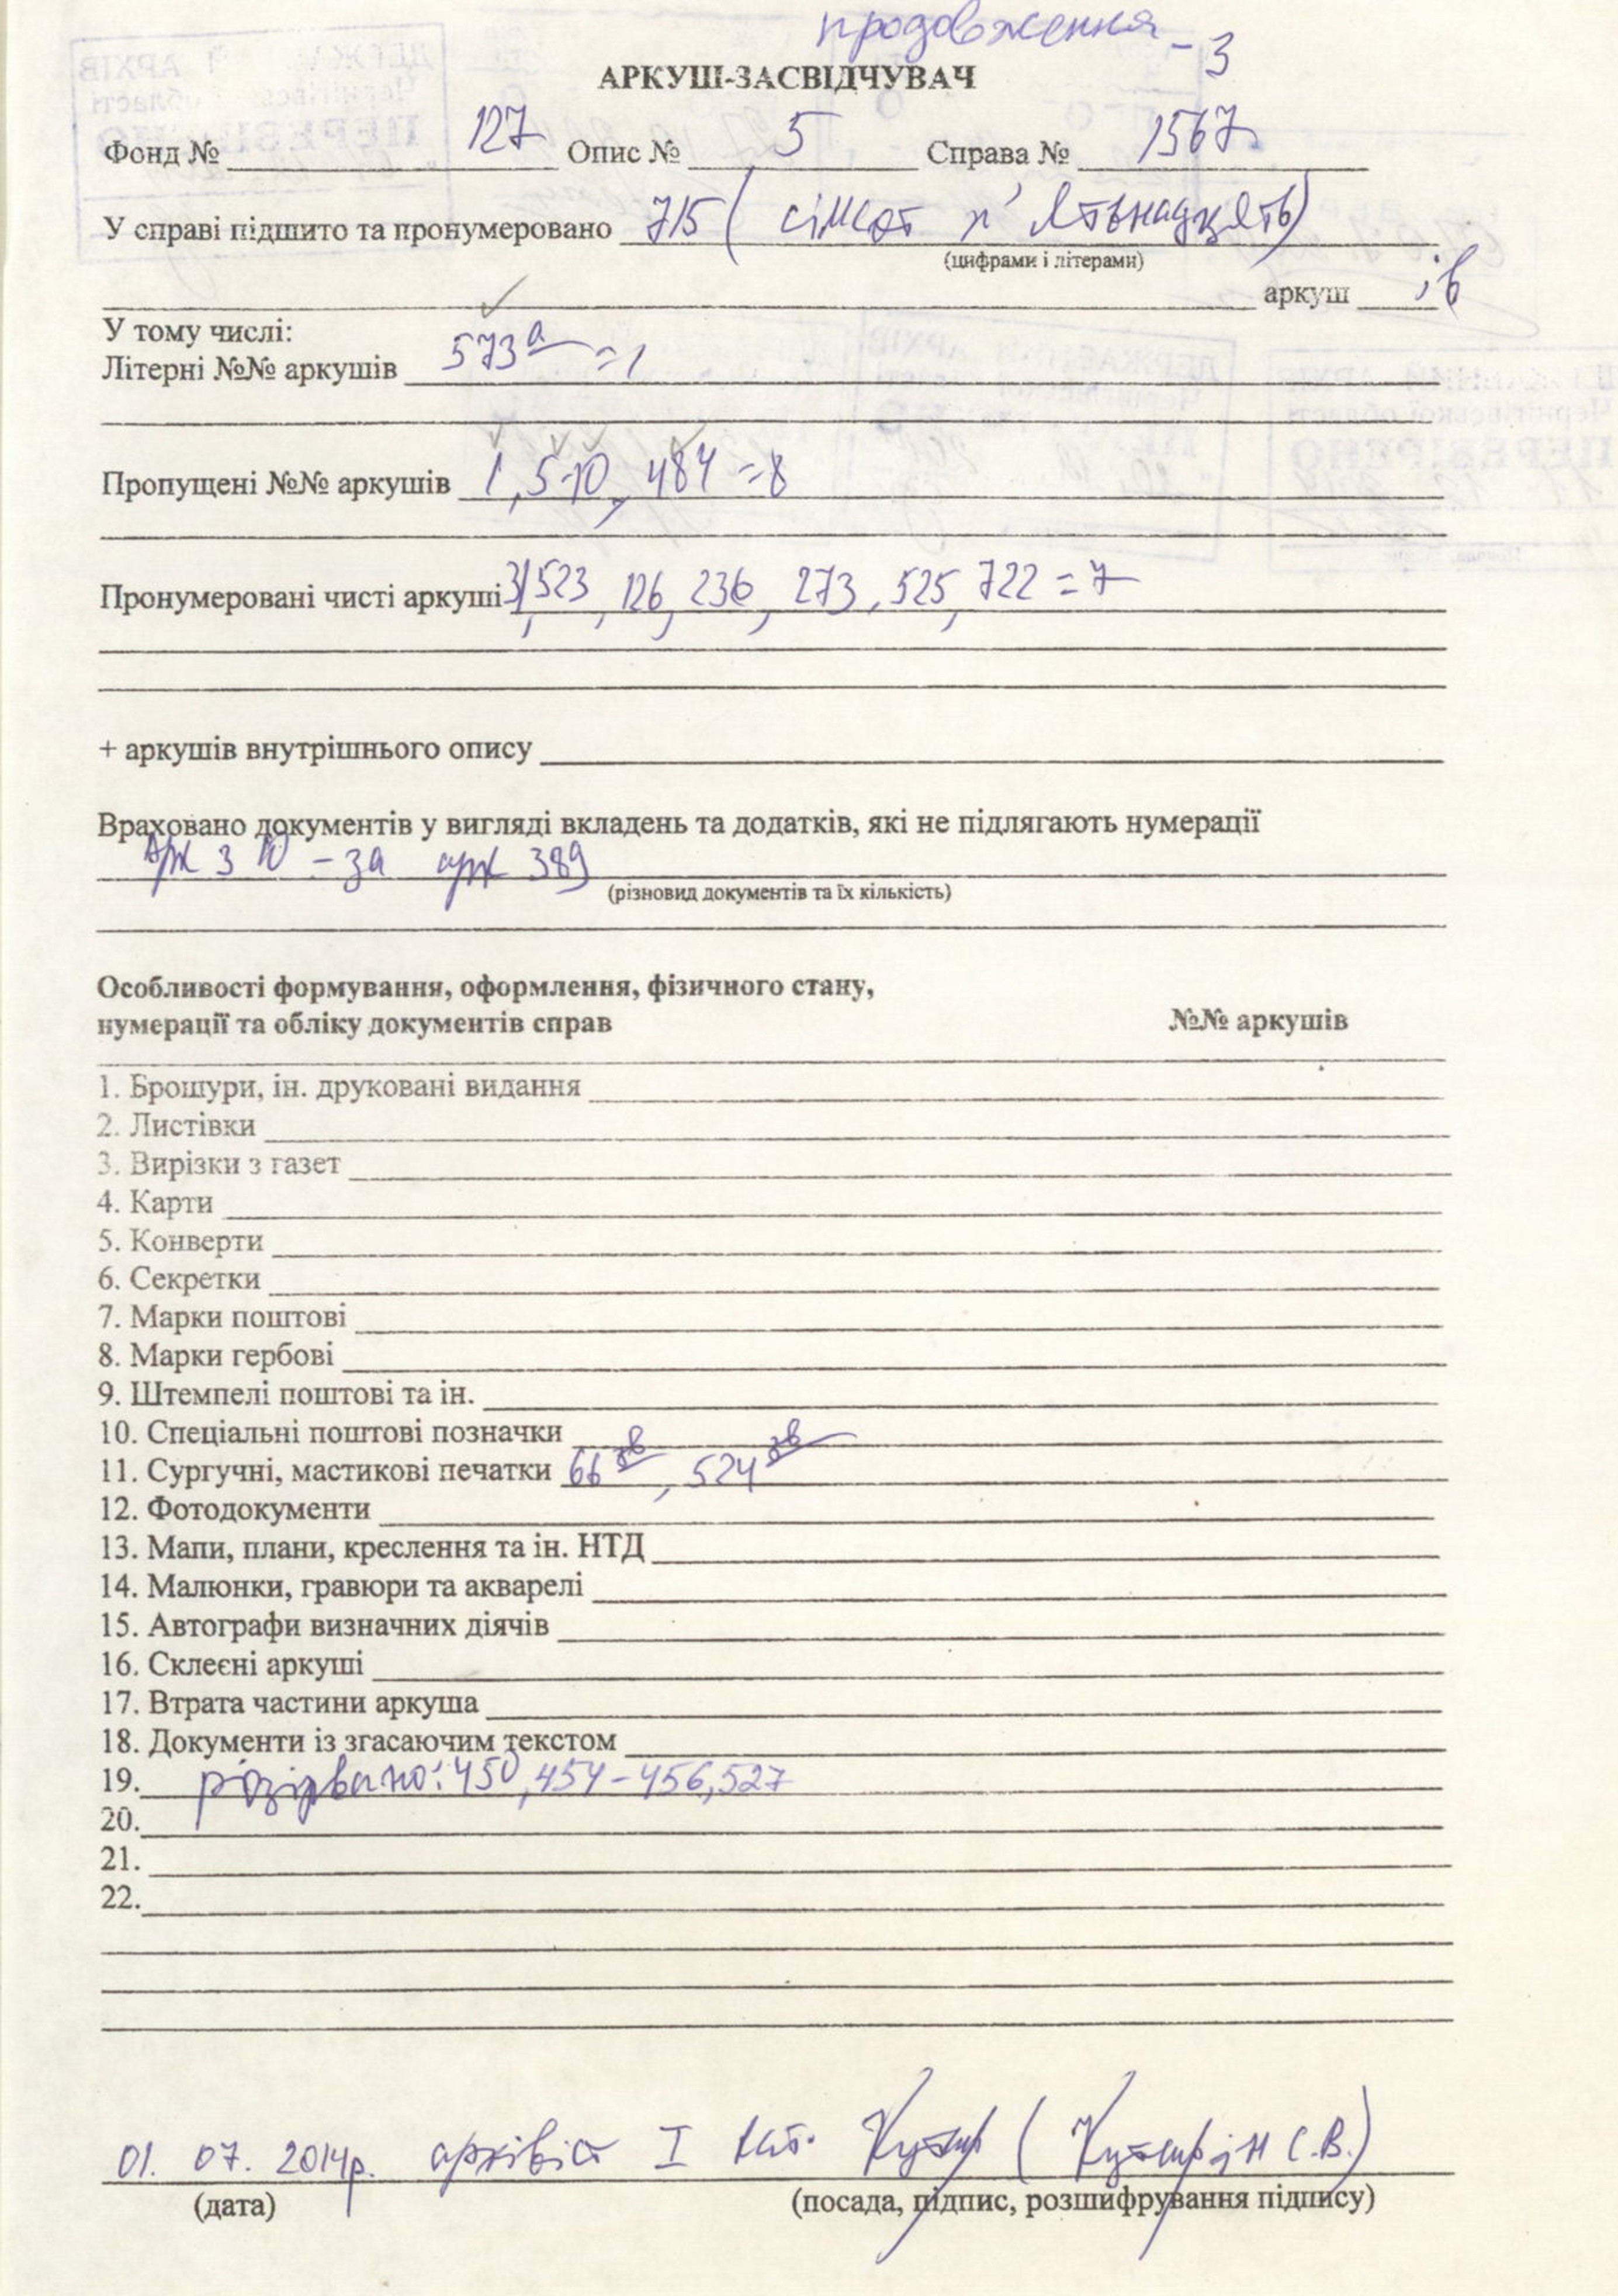 продовження - 3
АРКУШ-ЗАСВІДЧУВАЧ
Фонд № 127 Опис № 5 Справа № 1567
У справі підшито та пронумеровано 715 (сімсот п'ятьнадцять)
(цифрами і літерами)
аркуш ів
У тому числі:
Літерні №№ аркушів 573а = 1
Пропущені №№ аркушів 1, 5-10, 484 = 8
Пронумеровані чисті аркуші 31, 523, 126, 236, 273, 525, 722 = 7
+ аркушів внутрішнього опису
Враховано документів у вигляді вкладень та додатків, які не підлягають нумерації
Арк 3 10 - за арк 389
(різновид документів та їх кількість)
Особливості формування, оформлення, фізичного стану,
нумерації та обліку документів справ №№ аркушів
1. Брошури, ін. друковані видання
2. Листівки
3. Вирізки з газет
4. Карти
5. Конверти
6. Секретки
7. Марки поштові
8. Марки гербові
9. Штемпелі поштові та ін.
10. Спеціальні поштові позначки
11. Сургучні, мастикові печатки 66зв, 524зв
12. Фотодокументи
13. Мапи, плани, креслення та ін. НТД
14. Малюнки, гравюри та акварелі
15. Автографи визначних діячів
16. Склеєні аркуші
17. Втрата частини аркуша
18. Документи із згасаючим текстом
19. розірвано: 450, 454-456, 527
20.
21.
22.
01. 07. 2014р. архівіст І кат. (Кутирін С.В.)
(дата) (посада, підпис, розшифрування підпису)